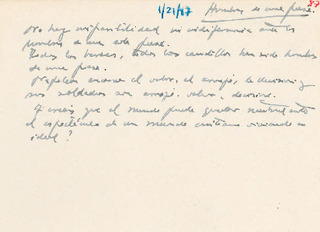 1/21/67 Hombres de una pieza. 87
No hay imparcialidad ni indiferencia ante los
hombres de una sola pieza.
Todos los héroes, todos los caudillos han sido hombres
de una pieza.
Napoleón encarna el valor, el arrojo, la decisión y
sus soldados son arrojo, valor, decisión.
¿Creéis que el mundo puede quedar neutral ante
el espectáculo de un mundo cristiano viviendo su
ideal?